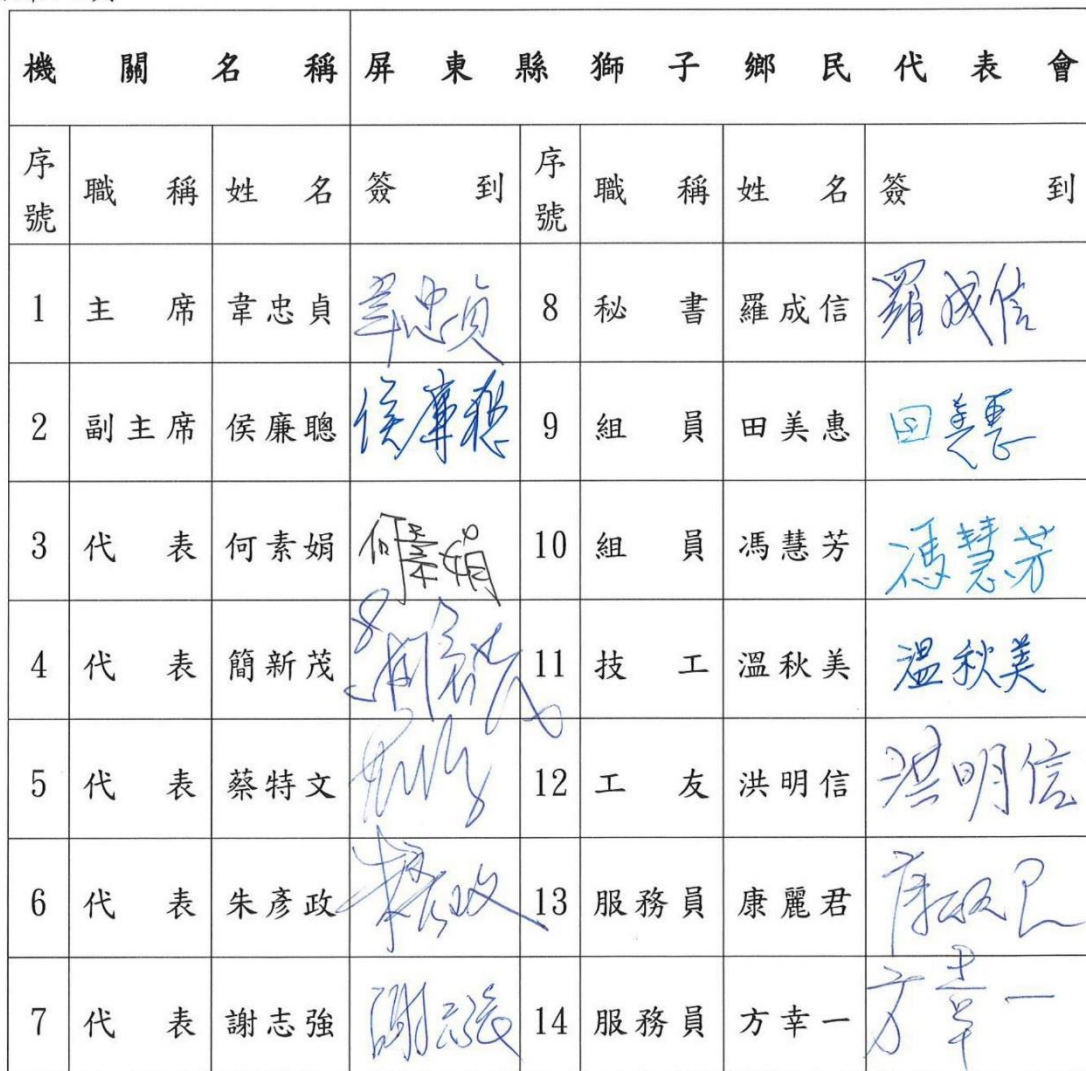 機關名稱 屏東縣獅子鄉民代表會
序號 職稱 姓名 簽到 序號 職稱 姓名 簽到
1 主席 韋忠貞 韋忠貞 8 秘書 羅成信 羅成信
2 副主席 侯廉聰 侯廉聰 9 組員 田美惠 田美惠
3 代表 何素娟 何素娟 10 組員 馮慧芳 馮慧芳
4 代表 簡新茂 簡新茂 11 技工 溫秋美 溫秋美
5 代表 蔡特文 12 工友 洪明信 洪明信
6 代表 朱彥政 朱彥政 13 服務員 康麗君
7 代表 謝志強 謝志強 14 服務員 方幸一 方幸一